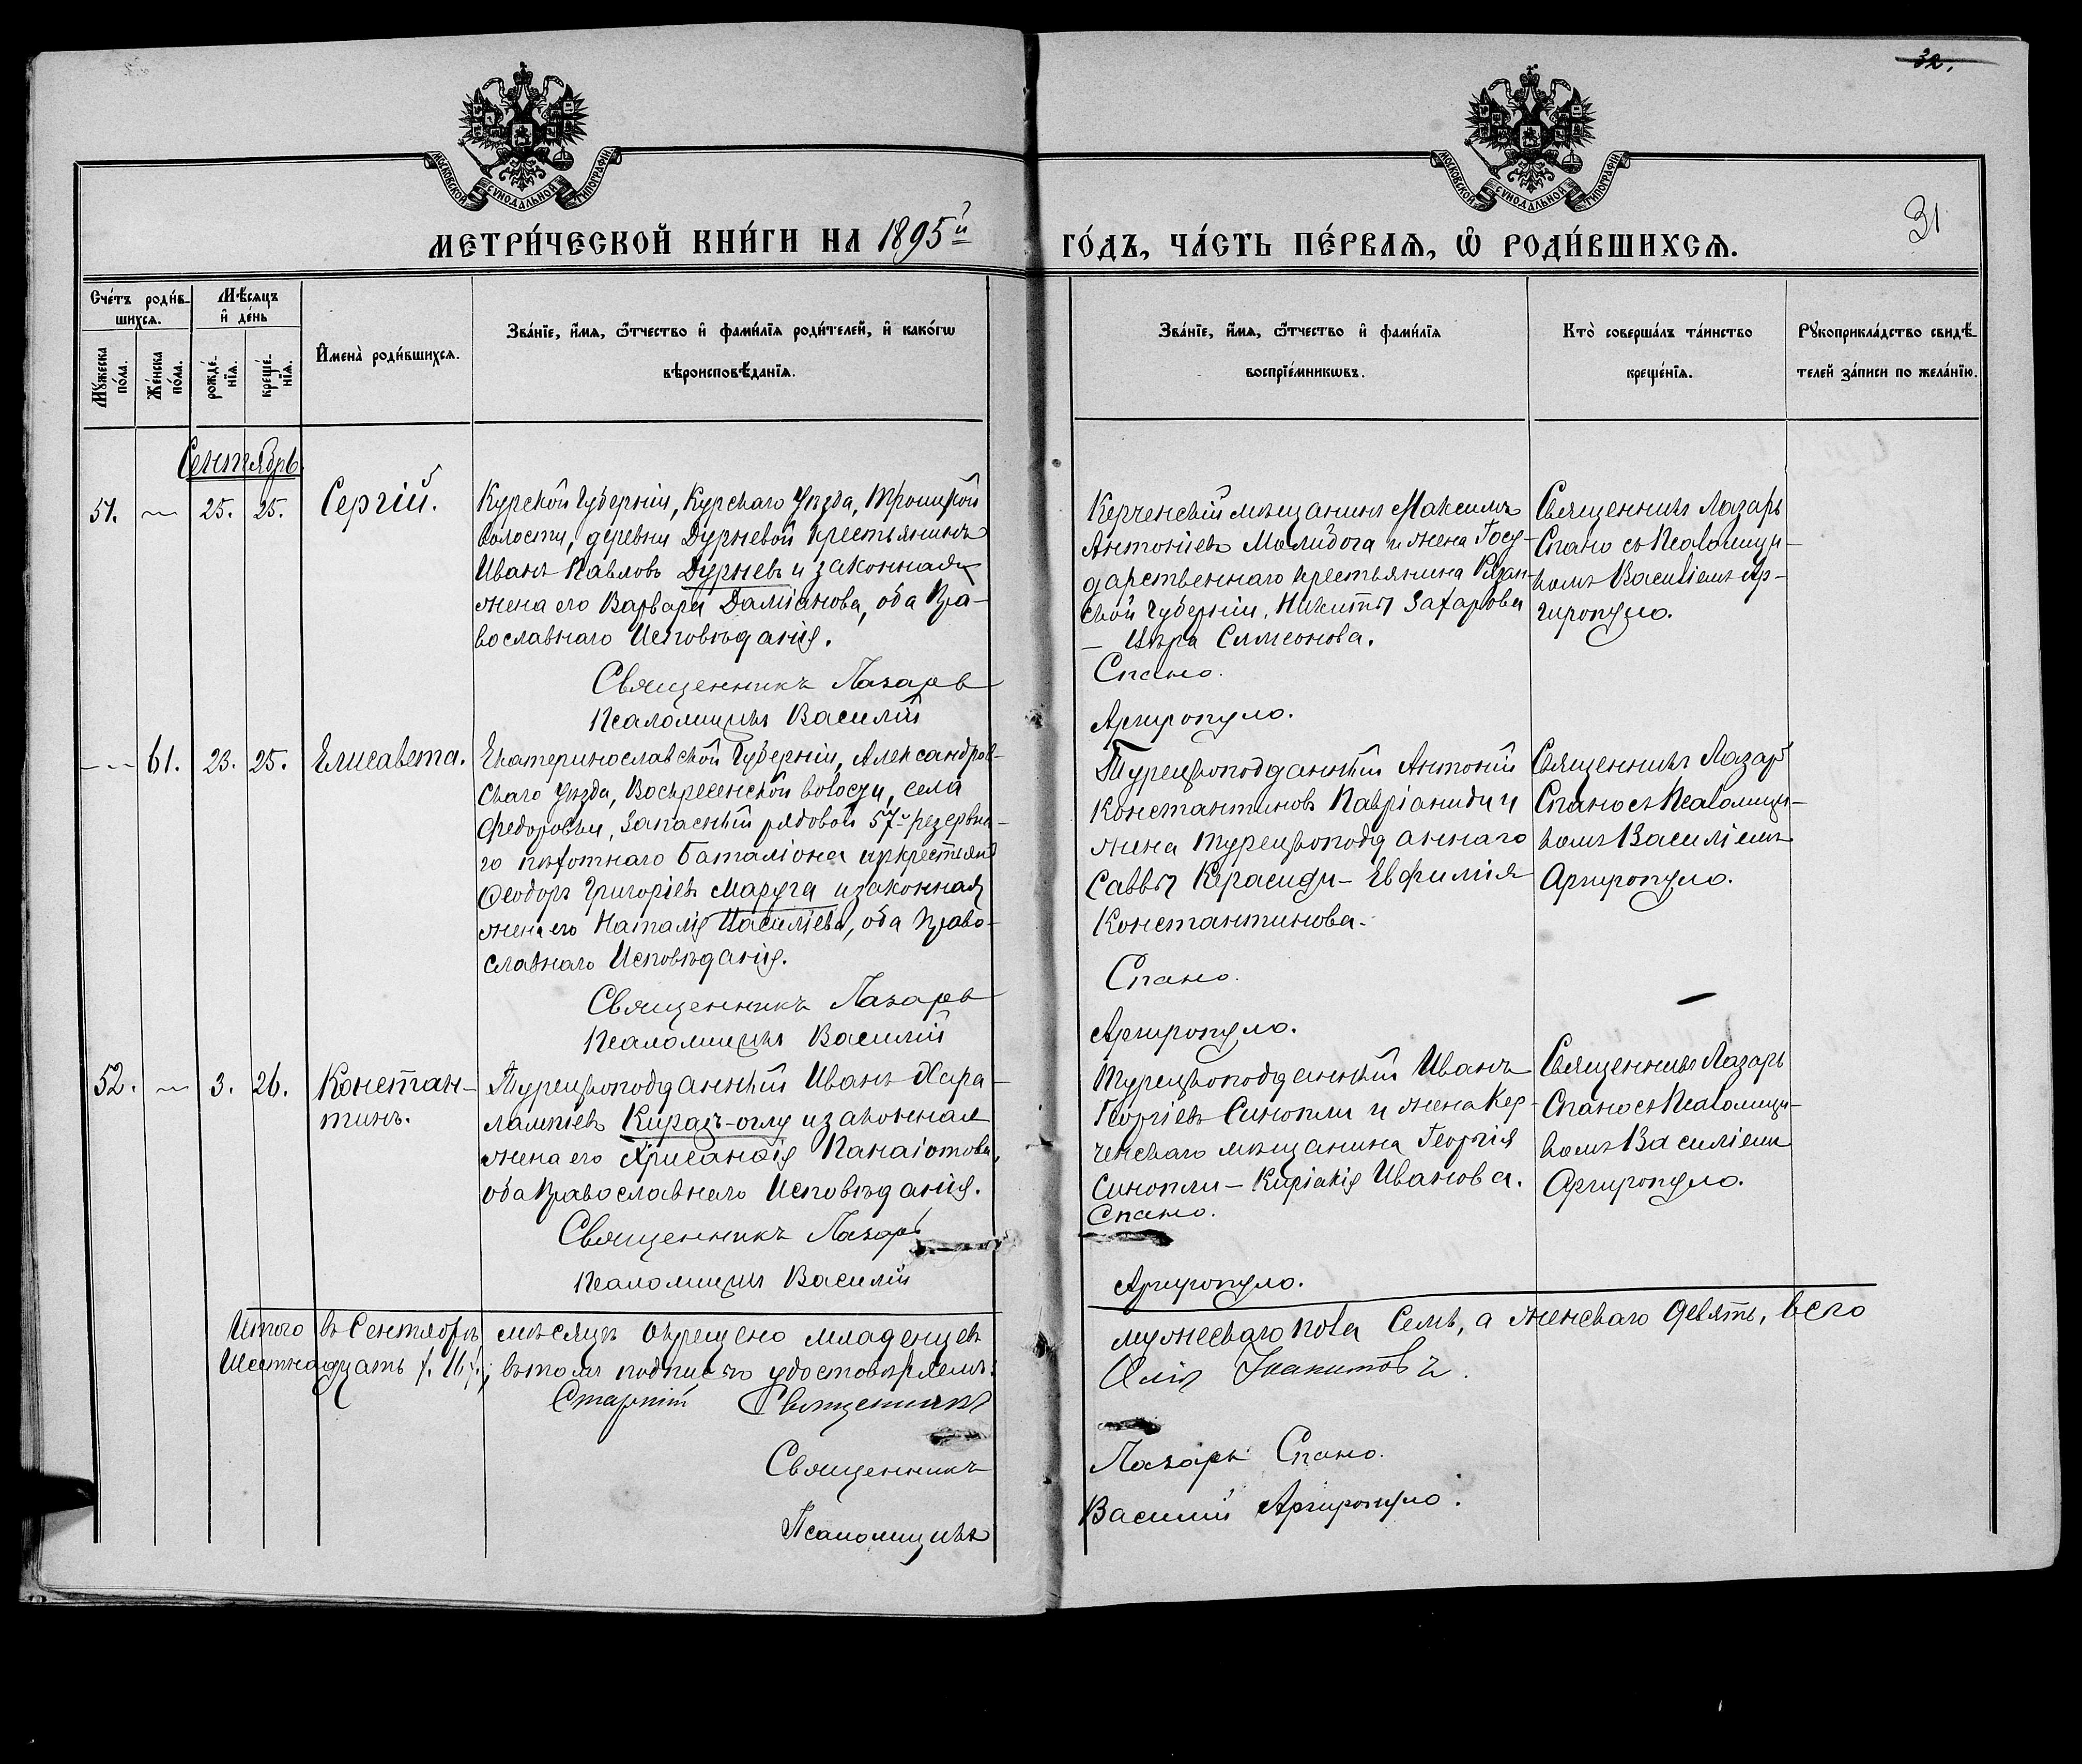 32.
31
МОСКОВСКОЙ СѴНОДАЛЬНОЙ ТИПОГРАФІИ
МОСКОВСКОЙ СѴНОДАЛЬНОЙ ТИПОГРАФІИ
МЕТРИ́ЧЕСКОЙ КНИ́ГИ НА 1895й
ГО́ДЪ, ЧА́СТЬ ПЕ́РВАѦ, Ѡ҆ РОДИ́ВШИХСѦ.
Сче́тъ роди́в-
шихсѧ.
Мѣ́сѧцъ
и҆ де́нь
Мꙋ́жеска
по́ла.
Же́нска
по́ла.
рожде́-
нїѧ.
креще́-
нїѧ.
И҆мена̀ роди́вшихсѧ.
Зва́нїе, и҆́мѧ, ѻ҆́тчество и҆ фами́лїѧ роди́телей, и҆ како́гѡ
вѣроисповѣ́данїѧ.
Зва́нїе, и҆́мѧ, ѻ҆́тчество и҆ фами́лїѧ
воспрїе́мникѡвъ.
Кто̀ соверша́лъ та́инство
креще́нїѧ.
Рꙋкоприкла́дство свидѣ́-
телей за́писи по жела́нїю.
Сентябрь
51. — 25. 25. Сергій.
Курской Губерніи, Курскаго Уѣзда, Троицкой
волости, деревни Дурневой крестьянинъ
Иванъ Павловъ Дурневъ и законная
жена его Варвара Даміанова, оба Пра-
вославнаго Исповѣданія.
Священникъ Лазарь
Псаломщикъ Василій
Керченскій мѣщанинъ Максимъ
Антоніевъ Малидога и жена Госу-
дарственнаго крестьянина Рязан-
ской Губерніи, Никиты Захарова
— Симеонова.
Спано.
Аргиропуло.
Священникъ Лазарь
Спано съ Псаломщи-
комъ Василіемъ Ар-
гиропуло.
— 61. 23. 25. Елисавета.
Екатеринославской Губерніи, Александров-
скаго Уѣзда, Воскресенской волости, села
Федоровки, Запасный рядовой 57й резервна-
го пѣхотнаго баталіона изъ крестьянъ
Ѳеодоръ Григоріевъ Маруга и законная
жена его Наталія Василіева, оба Право-
славнаго Исповѣданія.
Священникъ Лазарь
Псаломщикъ Василій
Турецкоподданный Антоній
Константиновъ Павріаниди и
жена турецкоподданнаго
Саввы Керасиди — Евфимія
Константинова.
Спано.
Аргиропуло.
Священникъ Лазарь
Спано съ Псаломщи-
комъ Василіемъ
Аргиропуло.
52. — 3. 26. Констан-
тинъ.
Турецкоподданный Иванъ Хара-
лампіевъ Киразъ-оглу и законная
жена его Хрисанѳія Панаіотова,
оба Православнаго Исповѣданія.
Священникъ Лазарь
Псаломщикъ Василій
Турецкоподданный Иванъ
Георгіевъ Синопли и жена Кер-
ченскаго мѣщанина Георгія
Синопли — Киріакія Иванова.
Спано.
Аргиропуло.
Священникъ Лазарь
Спано съ Псаломщи-
комъ Василіемъ
Аргиропуло.
Итого въ Сентябрѣ мѣсяцѣ окрещено младенцевъ
мужескаго пола Семь, а женскаго девять, всего
Шестнадцать /. 16 /.; въ томъ подписью удостовѣряемъ:
Старшій Священникъ
Священникъ
Лазарь Спано.
Псаломщикъ
Василій Аргиропуло.